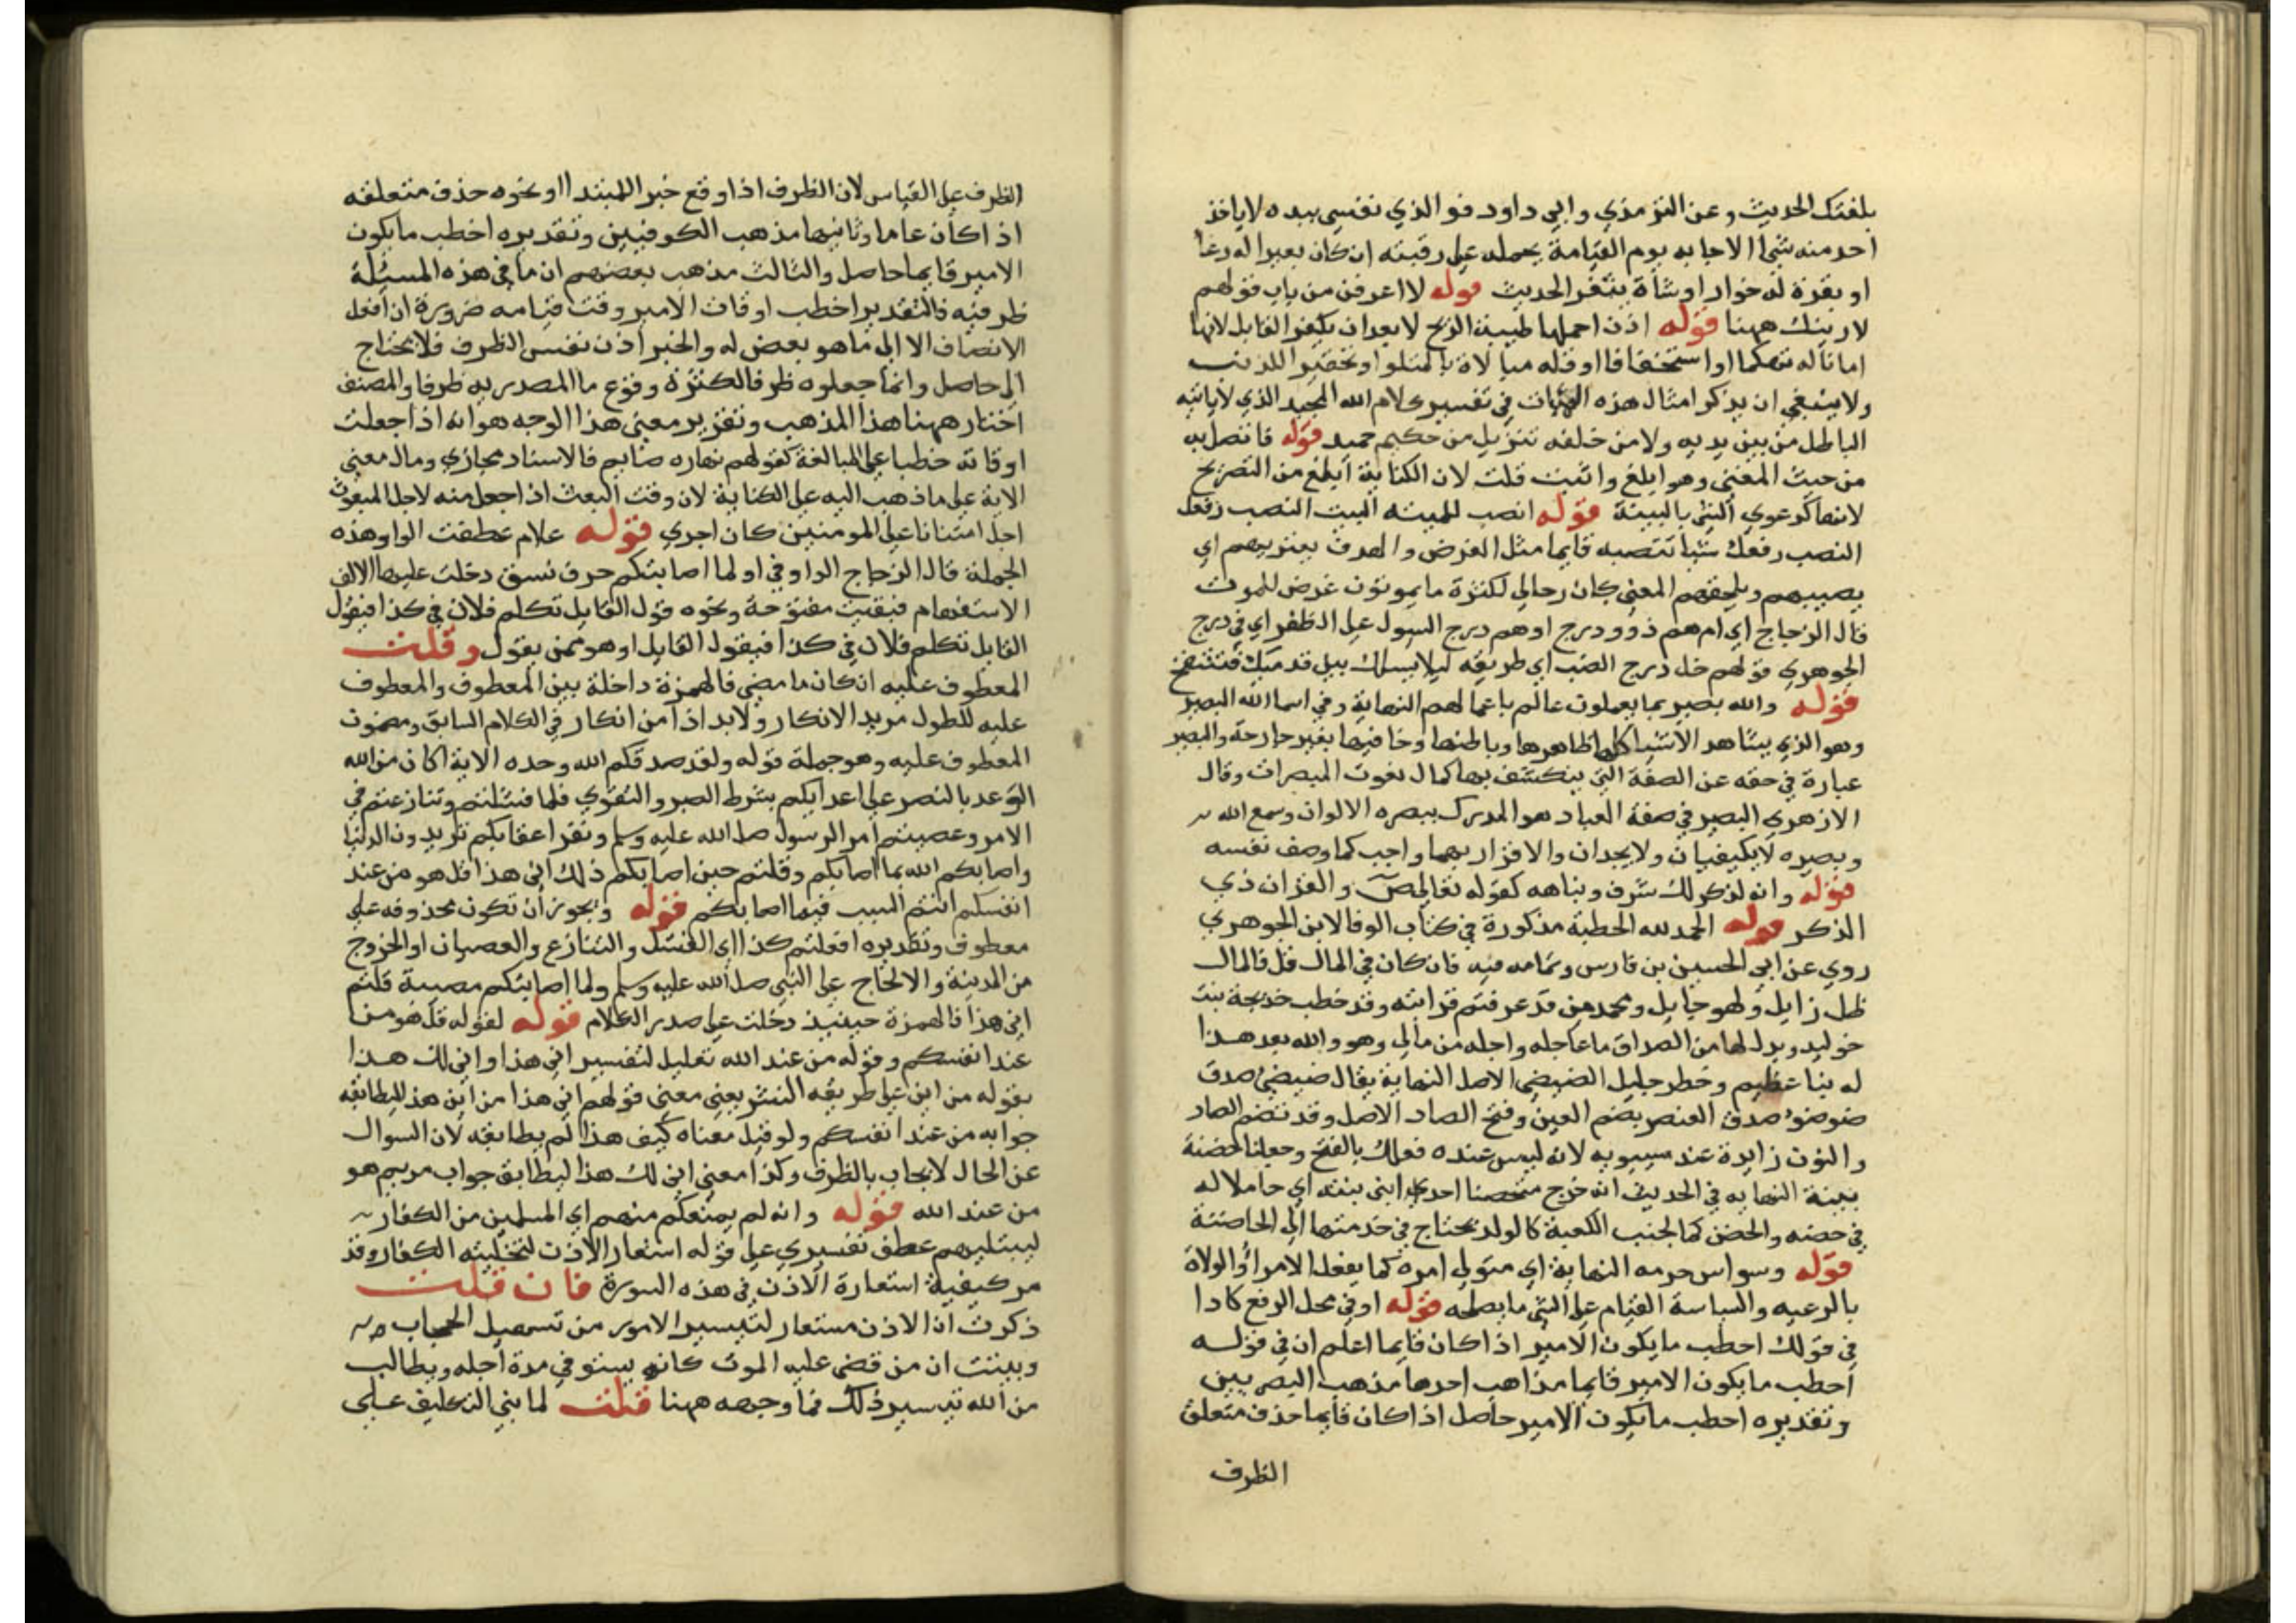 بلغتك الحديث وعن الترمذي وابي داود فو الذي نفسي بيده لا ياخذ
احد منه شيا الا جا به يوم القيامة يحمله على رقبته ان كان بعيرا له رغا
او بقرة له خوار او شاة يثغر الحديث قوله لا اعرفن من باب قولهم
لا رينك ههنا قوله اذن احملها طيبة الريح لا بعد ان يكفر القايل لانها
اما ناله تهكما او استخفافا او قله مبالاة بالمتلو او تحقير اللذنب
ولا ينبغي ان يذكر امثال هذه الهنات في تفسير كلام الله المجيد الذي لا ياتيه
الباطل من بين يديه ولا من خلفه تنزيل من حكيم حميد قوله فاتصل به
من حيث المعنى وهو ابلغ واثبت قلت لان الكناية ابلغ من التصريح
لانها كدعوي الشي بالبينة قوله انصب للميته البيت النصب رفعك
النصب رفعك شيا تنصبه قايما مثل الغرض والهدف يعتريهم اي
يصيبهم ويلحقهم المعنى كان رحالي لكثرة ما يموتون غرض للموت
قال الزجاج اي ام هم ذوو درج او هم درج السول على الظفر اي في درج
الجوهري قولهم خل درج الضب اي طريقه ليلا يسلك بين قدميك فتنتفخ
قوله والله بصير بما يعملون عالم باعمالهم النهاية وفي اسما الله البصير
وهو الذي يشاهد الاشيا كلها ظاهرها وباطنها وخافيها بغير جارحة والبصر
عبارة في حقه عن الصفة التي ينكشف بها كمال نعوت المبصرات وقال
الازهري البصير في صفة العباد هو المدرك ببصره الالوان وسمع الله
وبصره لا يكيفيان ولا يحدان والاقرار بهما واجب كما وصف نفسه
قوله وانه لذكر لك شرف ونباهه كقوله تعالى ص والقران ذي
الذكر قوله الحمد لله الخطبة مذكورة في كتاب الوفا لابن الجوهري
روي عن ابي الحسين بن فارس وتمامه فيه فان كان في المال قل فالمال
ظل زايل ولهو حايل ومحمد من قد عرفتم قرابته وقد خطب خديجة بنت
خوليد وبذل لها من الصداق ما عاجله واجله من مالي وهو والله بعد هذا
له نبا عظيم وخطر جليل الضيضي الاصل النهاية يقال ضيضي صدق
ضوضو صدق العنصر بضم العين وفتح الصاد الاصل وقد تضم الصاد
والنون زايدة عند سيبويه لانه ليس عنده فعلل بالفتح وجعلنا حضنة
بيته النهايه في الحديث انه خرج متحضنا احدي ابني بنته اي حاملا له
في حضنه والحضن كما الجنب الكعبة كالولد يحتاج في خدمتها الى الحاضنة
قوله وسواس حرمه النهاية اي متولي امره كما يفعل الامراؤ والولاة
بالرعيه والسياسة القيام على الشي ما يصلحه قوله او في محل الرفع كاذا
في قولك اخطب ما يكون الامير اذا كان قايما اعلم ان في قوله
اخطب ما يكون الامير قايما مذاهب احدها مذهب البصريين
وتقديره اخطب ما يكون الامير حاصل اذا كان قايما حذف متعلق
الظرف
الظرف على القياس لان الظرف اذا وقع خبر المبتدا او نحوه حذف متعلقه
اذا كان عاما وثانيها مذهب الكوفيين وتقديره اخطب ما يكون
الامير قايما حاصل والثالث مذهب بعضهم ان ما في هذه المسئلة
ظرفيه فالتقدير اخطب اوقات الامير وقت قيامه ضرورة ان افعل
لا يضاف الا الى ما هو بعض له والخبر اذن نفس الظرف فلا يحتاج
الى حاصل وانما جعلوه ظرفا لكثرة وقوع ما المصدريه ظرفا والمصنف
اختار ههنا هذا المذهب وتقرير معنى هذا الوجه هو انه اذا جعلت
اوقاته خطبا على المبالغة كقولهم نهاره صايم فالاسناد مجازي ومال معنى
الاية على ما ذهب اليه على الكناية لان وقت البعث اذا جعل منه لاجل المبعوث
اجل امتنانا على المومنين كان اجري قوله علام عطفت الواو هذه
الجملة قال الزجاج الواو في او لما اصابتكم حرف نسق دخلت عليها الالف
الاستفهام فبقيت مفتوحة ونحوه قول القايل تكلم فلان في كذا فيقول
القايل تكلم فلان في كذا فيقول القايل او هو ممن يقول وقلت
المعطوف عليه ان كان ما مضى فالهمزة داخلة بين المعطوف والمعطوف
عليه للطول مريد الانكار ولا بد اذا من انكار في الكلام السابق ومضمون
المعطوف عليه وهو جملة قوله ولقد صدقكم الله وحده الاية اكان من الله
الوعد بالنصر على اعدايكم بشرط الصبر والتقوي فلما فشلتم وتنازعتم في
الامر وعصيتم امر الرسول صلى الله عليه وسلم ونفر اعقابكم تريدون الدنيا
واصابكم الله بما اصابكم وقلتم حين اصابكم ذلك انى هذا قل هو من عند
انفسكم انتم السبب فيما اصابكم قوله ويجوز ان تكون محذوفه على
معطوف وتقديره افعلتم كذا اي الفشل والتنازع والعصيان او الخروج
من المدينة والالحاح على النبي صلى الله عليه وسلم ولما اصابتكم مصيبة قلتم
انى هذا فالهمزة حينيذ دخلت على صدر الكلام قوله لقوله قل هو من
عند انفسكم وقوله من عند الله تعليل لتفسير انى هذا وانى لك هذا
بقوله من اين على طريقه النشر يعني معنى قولهم انى هذا من اين هذا ليطابقه
جوابه من عند انفسكم ولو قيل معناه كيف هذا لم يطابقه لان السوال
عن الحال لا يجاب بالظرف وكذا معنى انى لك هذا ليطابق جواب مريم هو
من عند الله قوله وانه لم يمنعكم منهم اي المسلمين من الكفار
ليبتليهم عطف تفسيري على قوله استعار الاذن لتخليته الكفار وقد
مر كيفية استعارة الاذن في هذه السورة فان قلت
ذكرت ان الاذن مستعار لتيسير الامور من تسهيل الحجاب
وبينت ان من قضي عليه الموت كانه يستوفي مدة اجله ويطالب
من الله تيسير ذلك فما وجهه ههنا قلت لما بني التكليف على